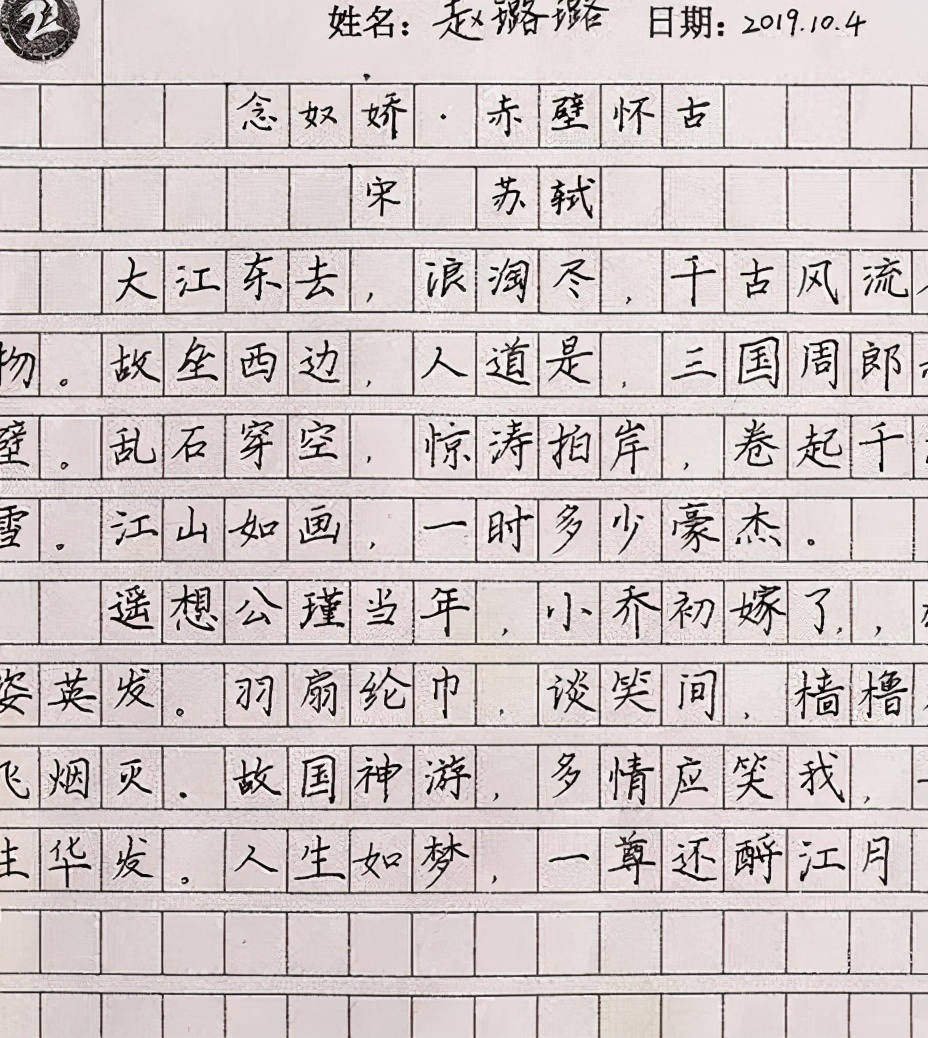 姓名：赵璐璐 日期：2019.10.4
念奴娇·赤壁怀古
宋 苏轼
大江东去，浪淘尽，千古风流
物。故垒西边，人道是，三国周郎
壁。乱石穿空，惊涛拍岸，卷起千
雪。江山如画，一时多少豪杰。
遥想公瑾当年，小乔初嫁了，，
姿英发。羽扇纶巾，谈笑间，樯橹
飞烟灭。故国神游，多情应笑我，
生华发。人生如梦，一尊还酹江月